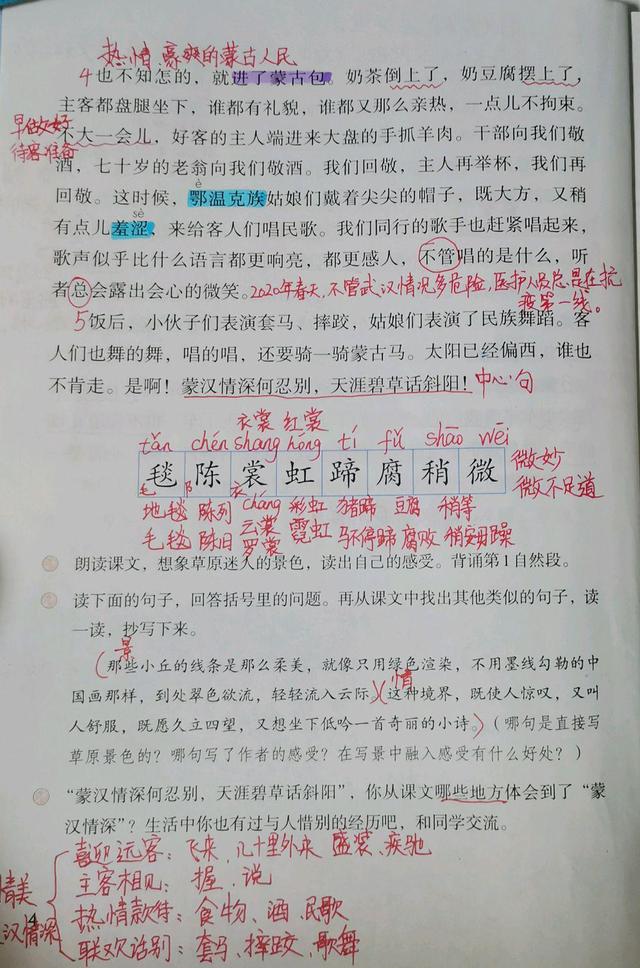 热情、豪爽的蒙古人民
4也不知怎的，就进了蒙古包。奶茶倒上了，奶豆腐摆上了，
主客都盘腿坐下，谁都有礼貌，谁都又那么亲热，一点儿不拘束。
早做好
待客准备
不大一会儿，好客的主人端进来大盘的手抓羊肉。干部向我们敬
酒，七十岁的老翁向我们敬酒。我们回敬，主人再举杯，我们再
è
回敬。这时候，鄂温克族姑娘们戴着尖尖的帽子，既大方，又稍
sè
有点儿羞涩，来给客人们唱民歌。我们同行的歌手也赶紧唱起来，
歌声似乎比什么语言都更响亮，都更感人，不管唱的是什么，听
者总会露出会心的微笑。2020年春天，不管武汉情况多危险，医护人员总是在抗
疫第一线。
5饭后，小伙子们表演套马、摔跤，姑娘们表演了民族舞蹈。客
人们也舞的舞，唱的唱，还要骑一骑蒙古马。太阳已经偏西，谁也
不肯走。是啊！蒙汉情深何忍别，天涯碧草话斜阳！中心句
衣裳 红裳
tǎn chén shang hóng tí fǔ shāo wēi
毯陈裳虹蹄腐稍微
微妙
微不足道
毛 阝 衣 cháng
地毯 陈列 云裳 彩虹 猪蹄 豆腐 稍等
毛毯 陈旧 罗裳 霓虹 马不停蹄 腐败 稍安勿躁
朗读课文，想象草原迷人的景色，读出自己的感受。背诵第1自然段。
读下面的句子，回答括号里的问题。再从课文中找出其他类似的句子，读
一读，抄写下来。
景
（那些小丘的线条是那么柔美，就像只用绿色渲染，不用墨线勾勒的中
情
国画那样，到处翠色欲流，轻轻流入云际。）（这种境界，既使人惊叹，又叫
人舒服，既愿久立四望，又想坐下低吟一首奇丽的小诗。）（哪句是直接写
草原景色的？哪句写了作者的感受？在写景中融入感受有什么好处？）
“蒙汉情深何忍别，天涯碧草话斜阳”，你从课文哪些地方体会到了“蒙
汉情深”？生活中你也有过与人惜别的经历吧，和同学交流。
喜迎远客：飞来、几十里外来 盛装、疾驰
主客相见：握、说
情美
汉情深
4
热情款待：食物、酒、民歌
联欢话别：套马、摔跤、歌舞